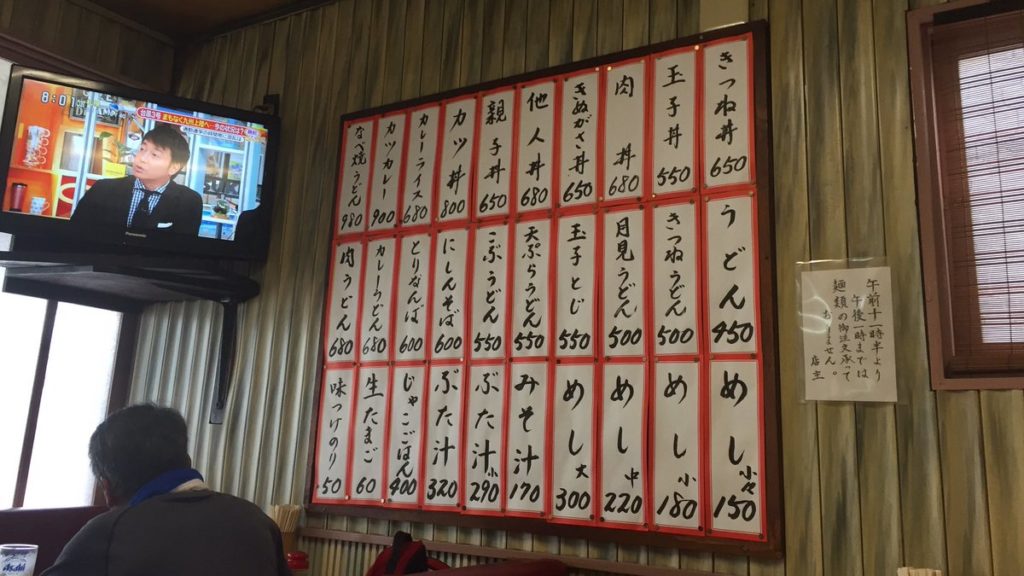 きつね丼 650
玉子丼 550
肉丼 680
きぬがさ丼 650
他人丼 680
親子丼 650
カツ丼 800
カレーライス 680
カツカレー 900
なべ焼うどん 980
うどん 450
きつねうどん 500
月見うどん 500
玉子とじ 550
天ぷらうどん 550
こぶうどん 550
にしんそば 600
とりなんば 600
カレーうどん 680
肉うどん 680
めし 小々 150
めし 小 180
めし 中 220
めし 大 300
みそ汁 170
ぶた汁 小 290
ぶた汁 320
じゃこごはん 400
生たまご 60
味つけのり 50
午前十一時半より
午後一時までは
麺類の御注文承って
おりません。
店主
8:01
台風3号 まもなく九州上陸へ 今の状況は?
Asahi